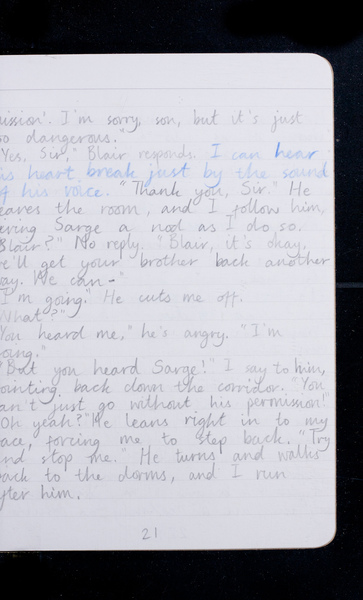 ission'. I'm sorry, son, but it's just
oo dangerous."
Yes, Sir," Blair responds. I can hear
is heart break just by the sound
f his voice. "Thank you, Sir." He
eaves the room, and I follow him,
ering Sarge a nod as I do so.
Blair?" No reply. "Blair, it's okay,
e'll get your brother back another
ay. We can -"
I'm going." He cuts me off.
What?"
You heard me," he's angry. "I'm
oing."
"But you heard Sarge!" I say to him,
ointing back down the corridor. "You
an't just go without his permission!"
"Oh yeah?" He leans right in to my
ace, forcing me to step back. "Try
nd stop me." He turns and walks
ack to the dorms, and I run
fter him.
21